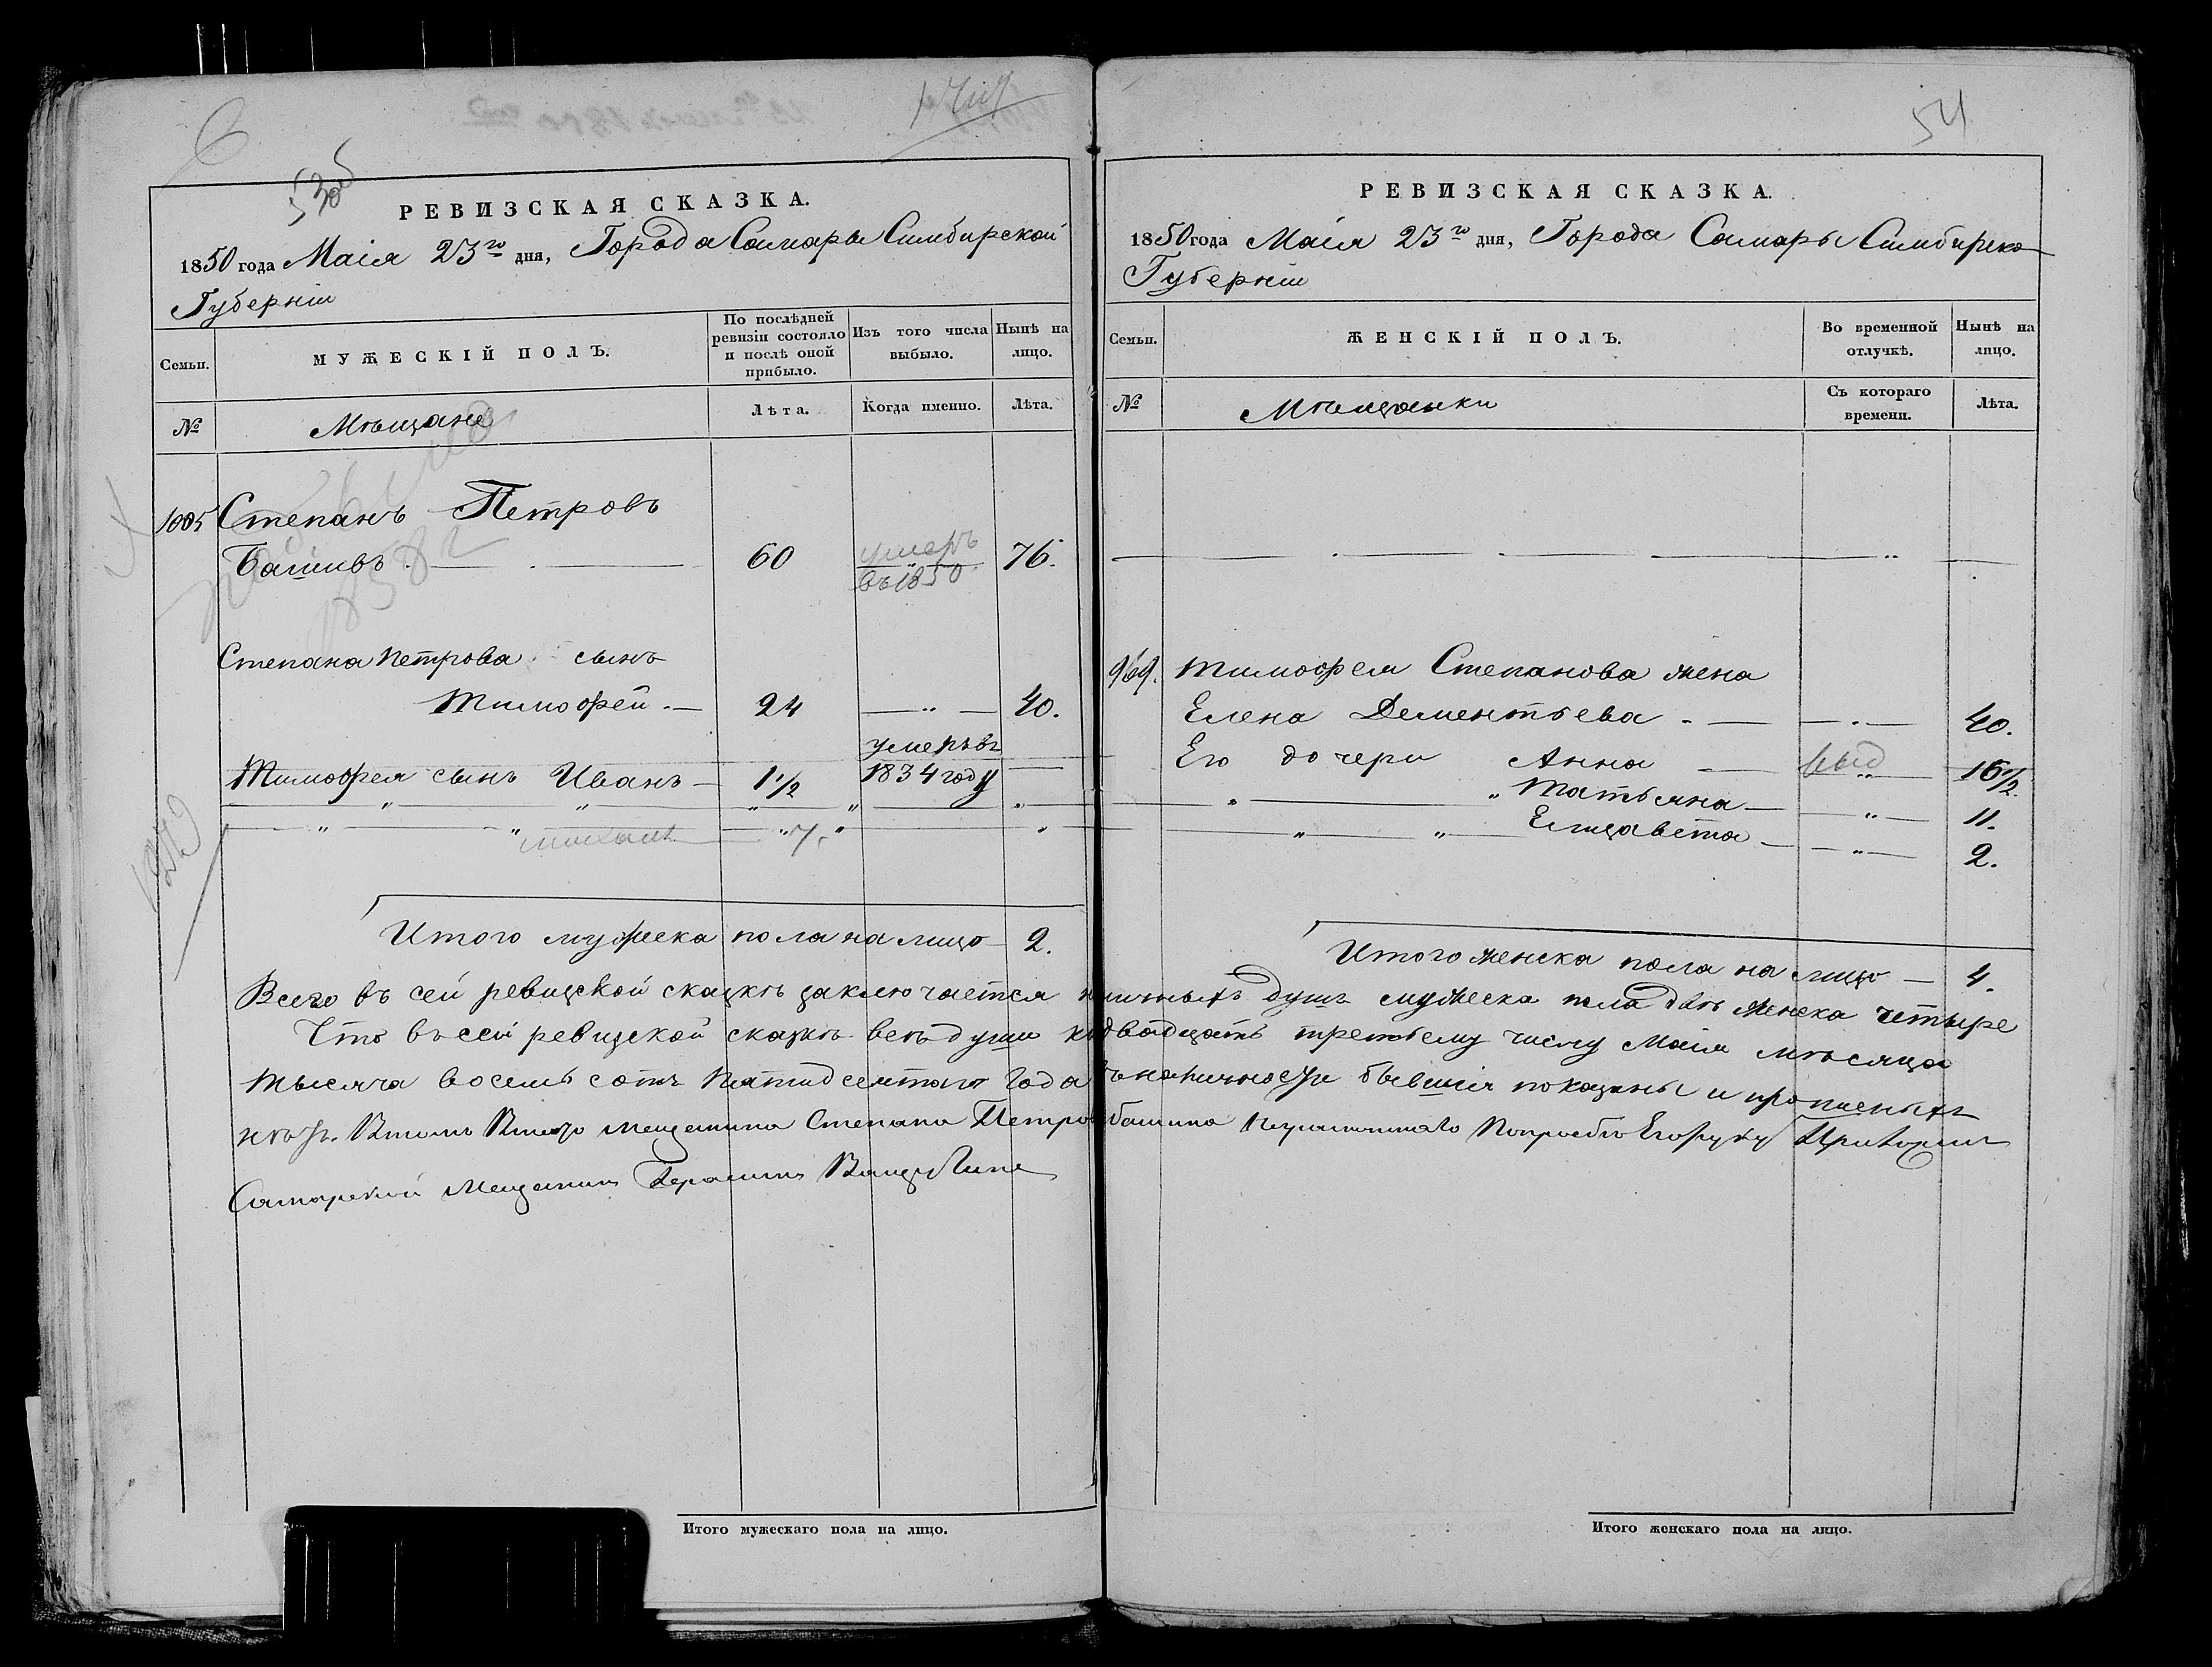 53об
54
РЕВИЗСКАЯ СКАЗКА.
1850 года Маія 23го дня, Города Самары Симбирской
Губерніи
Семьи.
МУЖЕСКІЙ ПОЛЪ.
По послѣдней ревизіи состояло и послѣ оной прибыло.
Изъ того числа выбыло.
Нынѣ на лицо.
№
Мѣщане
Лѣта.
Когда именно.
Лѣта.
1005 Степанъ Петровъ
60 умеръ въ 1850 76.
Степана Петрова сынъ
Тимофей. — 24 — „ — 40.
Тимофея сынъ Иванъ — 1½ умеръ въ 1834 году —
Михаилъ 7.
Итого мужеска пола на лицо — 2.
РЕВИЗСКАЯ СКАЗКА.
1850 года Маія 23го дня, Города Самары Симбирско
Губерніи
Семьи.
ЖЕНСКІЙ ПОЛЪ.
Во временной отлучкѣ.
Нынѣ на лицо.
№
Мѣщанки
Съ котораго времени.
Лѣта.
969. Тимофея Степанова жена
Елена Дементьева - — 40.
Его дочери Анна — выд 16½.
„ „ Татьяна — „ — 11.
„ „ Елизавета — „ — 2.
Итого женска пола на лицо — 4.
Всего въ сей ревизской сказкѣ заключается наличныхъ душъ мужеска пола двѣ женска четыре
Что въ сей ревизской сказкѣ всѣ души къ двадцать третьему числу Маія мѣсяца
тысяча восемь сотъ пятидесятаго года въ наличности бывшія показаны и прописныхъ
нѣтъ. Мещанина Степана Петрова
Самарской Мещанинъ
Итого мужескаго пола на лицо.
Итого женскаго пола на лицо.